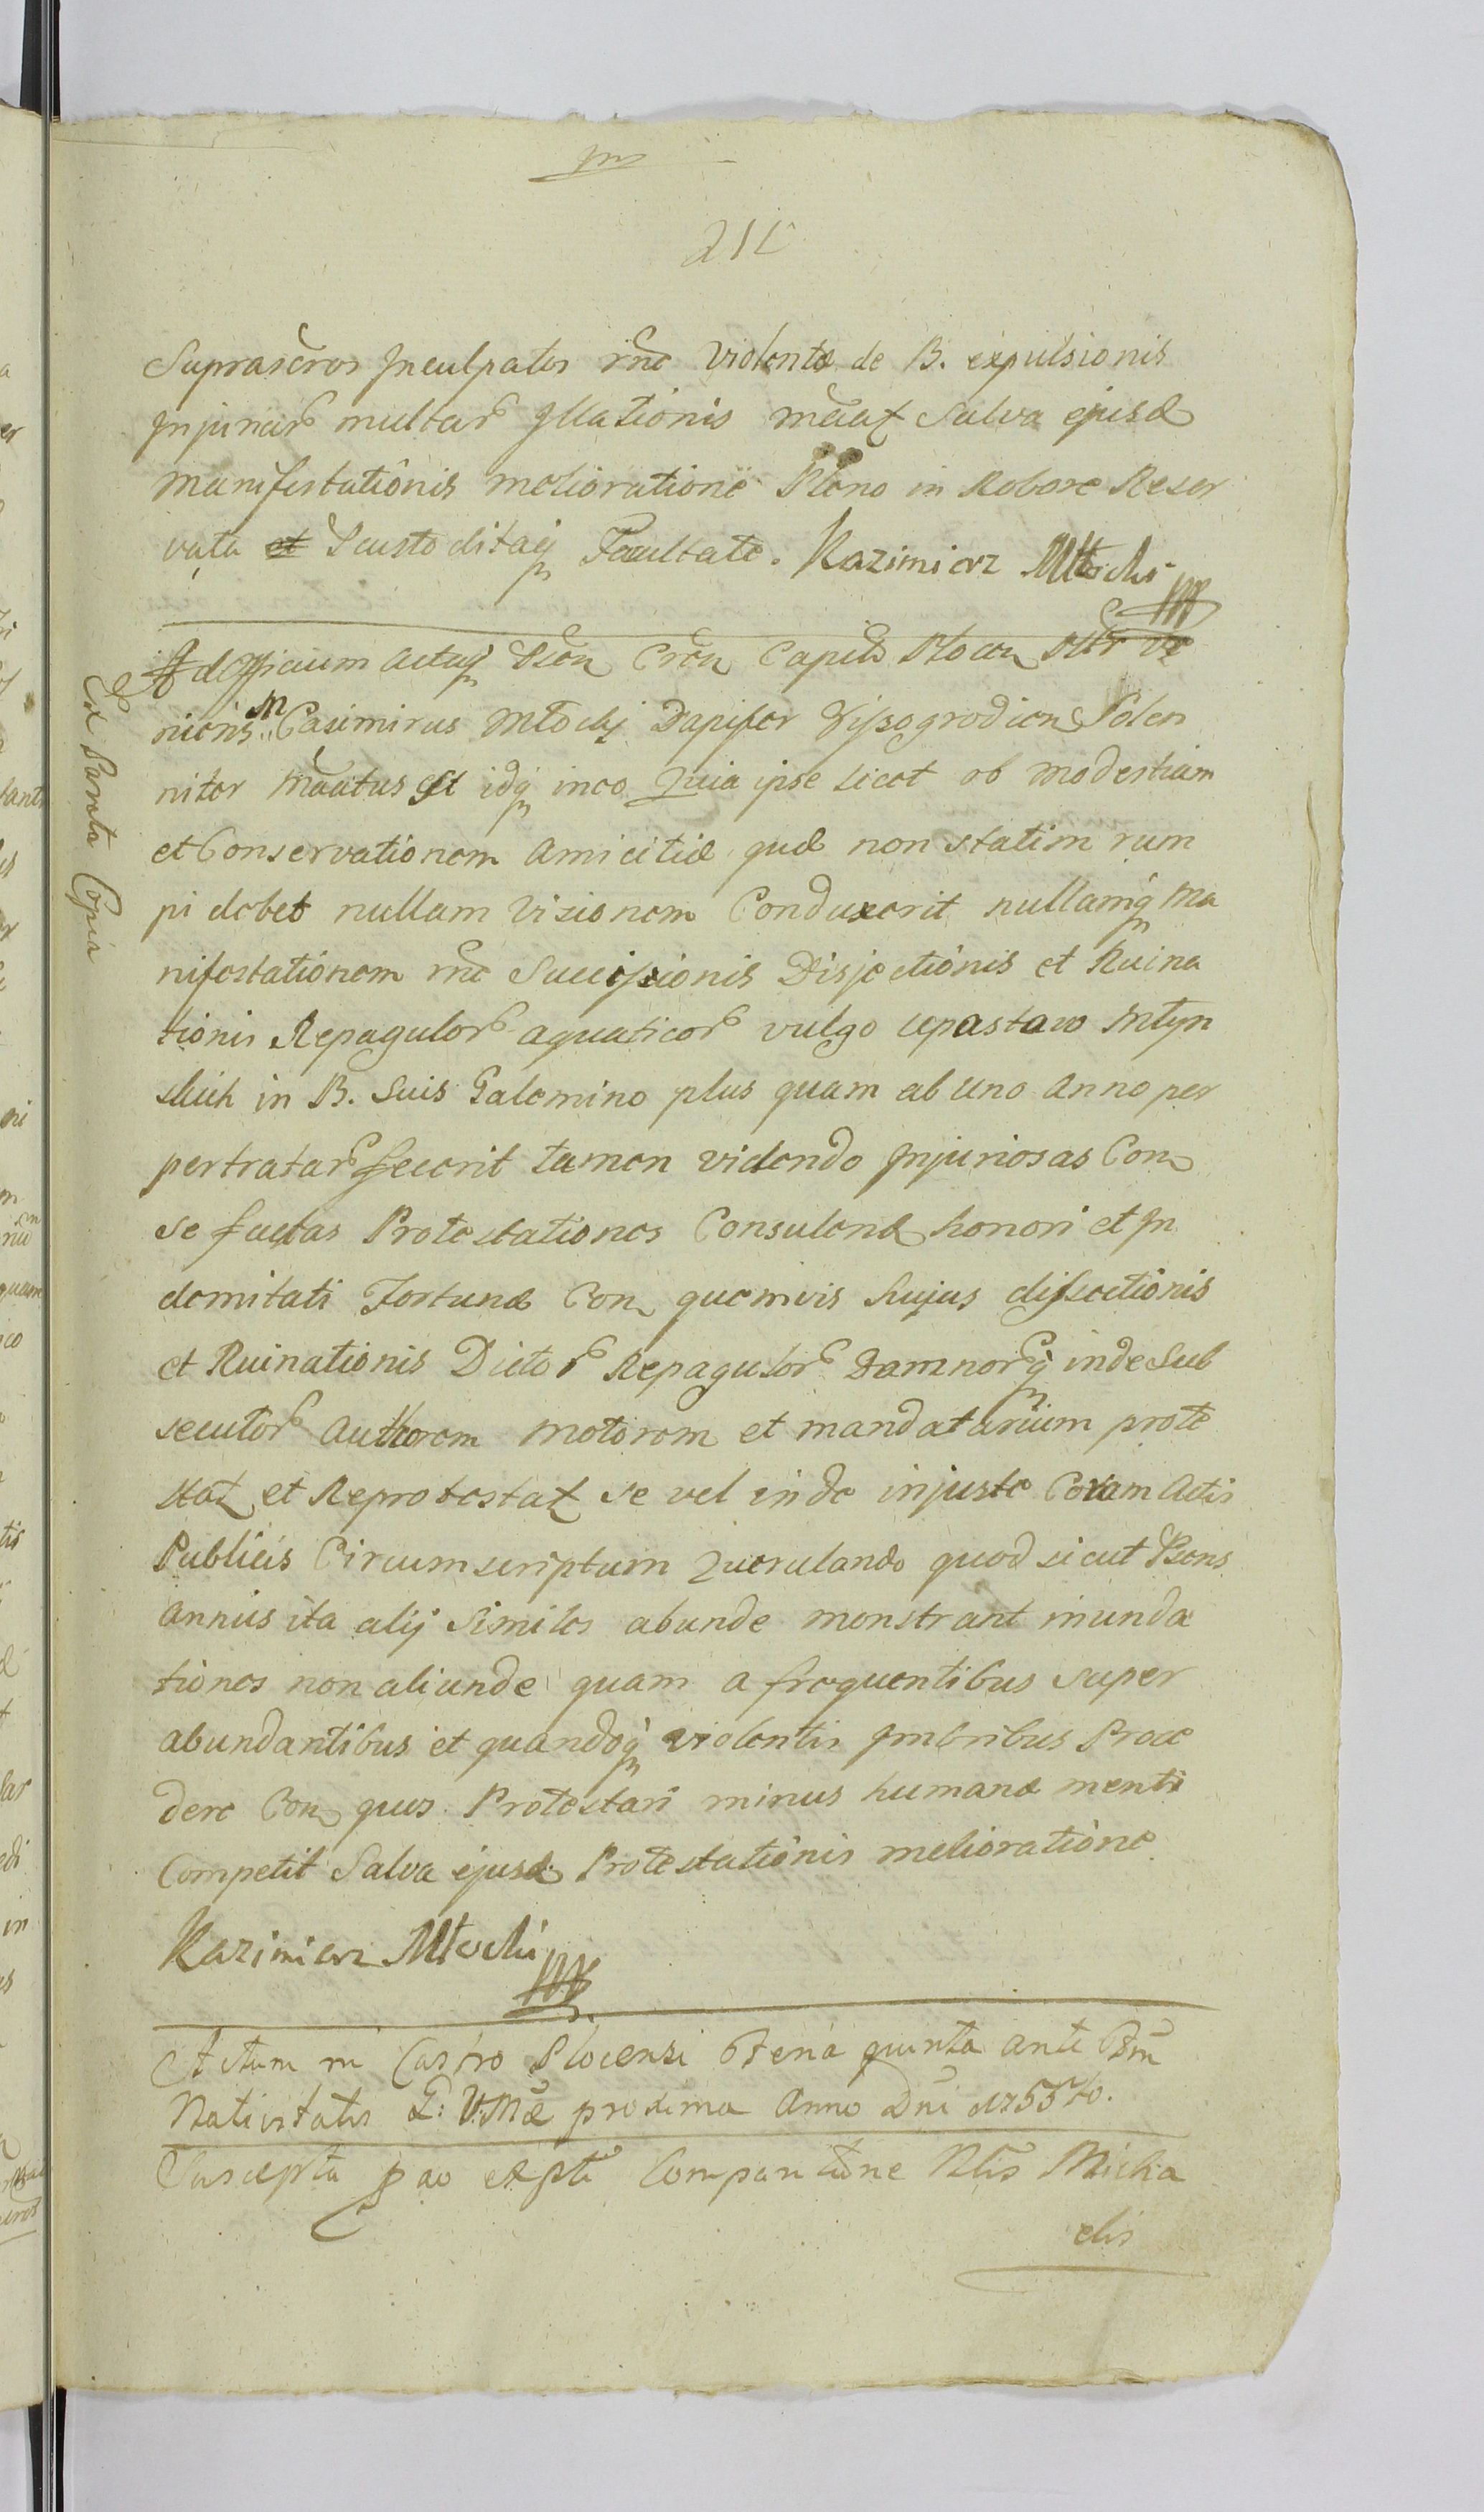 211
Suprascros Inculpatos rne Violentæ de B. expulsionis
Injuriar multar Illationis māat Salva ejusd
manifestationis melioratione Pleno in Robore Reser
vata et Pcustoditaq Facultate. Kazimierz Młocki
Ad Officium Actaq Pson Cron Capitd Plocen Ptr ve
niens M Casimirus Młocki Dapifer Vissogrodien Solen
niter māatus est idq ineo Quia ipse licet ob modestiam
et Conservationem amicitiæ quæ non statim rum
pi debet nullam Visionem Conduxerit nullamq Ma
nifestationem rne Succissionis Disjectionis et Ruina
tionis Repagulor aquaticor vulgo upastaw Młyn
skich in B. Suis Galomino plus quam ab uno Anno per
pertratar fecerit tamen videndo Injuriosas Con
se factas Protestationes Consulend honori et In
demitati Fortunæ Con quemvis hujus dissectionis
et Ruinationis Dictor Repagulor Damnorq inde Sub
secutor Authorem Motorem et mandatarium prote
stat et Reprotestat se vel inde injuste Coram Actis
Publicis Circumscriptum Querulando quod sicut Psens
annus ita alij Similes abunde monstrant inunda
tiones non aliunde quam a frequentibus super
abundantibus et quandoq violentis Imbribus Proce
dere Con quos Protestari minus humanæ menti
Competit Salva ejusd Protestationis melioratione
Kazimierz Młocki
Actum in Castro Plocensi Feria quinta ante Ftm
Nativitatis B: V: Mæ proxima Anno Dni 1755to.
Suscepta p ac expta Comparitione Nlis Micha
elis
Ex Parata Copia